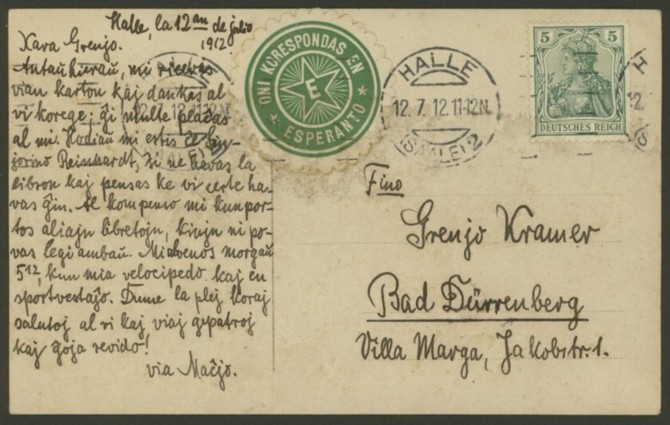 Halle, la 12an de julio
1912
Kara Grenjo.
Antaŭhieraŭ, mi ricevis
vian karton kaj dankas al
vi korege; ĝi multe plaĉas
al mi. Hodiaŭ mi estis ĉe Sin-
jorino Reinhardt, ŝi ne havas la
libron kaj pensas ke vi certe ha-
vas ĝin. Al kompenso mi kunpor-
tos aliajn libretojn, kiujn ni po-
vas legi ambaŭ. Mi venos morgaŭ
5¹², kun mia velocipedo kaj en
sportvestaĵo. Dume la plej koraj
salutoj al vi kaj viaj gepatroj
kaj ĝoja revido!
via Maĉjo.
ONI KORESPONDAS EN
E
ESPERANTO
HALLE
12.7.12.11-12N.
(SAALE) 2
5 5
DEUTSCHES REICH
Grenjo Kramer
Bad Dürrenberg
Villa Marga, Jakobstr. 1.